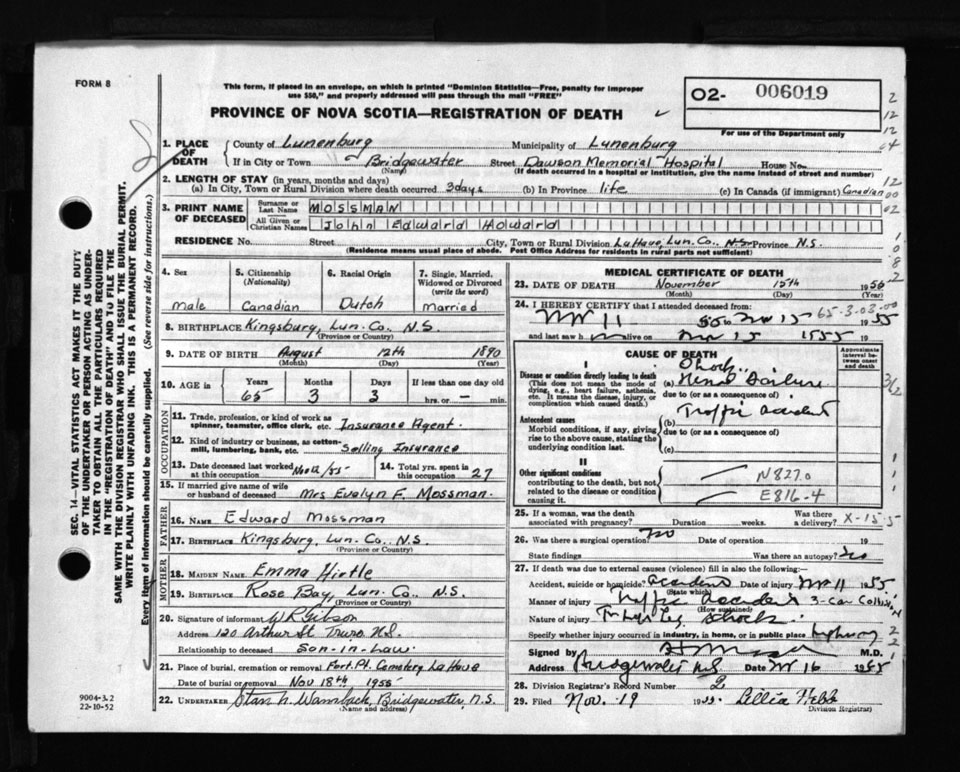 FORM 8
This form, if placed in an envelope, on which is printed "Dominion Statistics—Free, penalty for improper
use $50," and properly addressed will pass through the mail "FREE"
O2- 006019
For use of the Department only
PROVINCE OF NOVA SCOTIA—REGISTRATION OF DEATH
1. PLACE OF DEATH
County of Lunenburg Municipality of Lunenburg
If in City or Town Bridgewater Street Dawson Memorial Hospital House No.
(Name) (If death occurred in a hospital or institution, give the name instead of street and number)
2. LENGTH OF STAY (in years, months and days)
(a) In City, Town or Rural Division where death occurred 3 days (b) In Province life (c) In Canada (if immigrant) Canadian
3. PRINT NAME OF DECEASED
Surname or Last Name MOSSMAN
All Given or Christian Names John Edward Howard
RESIDENCE No. Street City, Town or Rural Division LaHave, Lun. Co., N.S. Province N.S.
(Residence means usual place of abode. Post Office Address for residents in rural parts not sufficient)
4. Sex
male
5. Citizenship
(Nationality)
Canadian
6. Racial Origin
Dutch
7. Single, Married,
Widowed or Divorced
(write the word)
Married
8. BIRTHPLACE Kingsburg, Lun. Co. N.S.
(Province or Country)
9. DATE OF BIRTH August 12th 1890
(Month) (Day) (Year)
10. AGE in
Years Months Days If less than one day old
65 3 3 hrs. or — min.
OCCUPATION
11. Trade, profession, or kind of work as
spinner, teamster, office clerk, etc. Insurance Agent.
12. Kind of industry or business, as cotton-
mill, lumbering, bank, etc. Selling Insurance
13. Date deceased last worked
at this occupation
14. Total yrs. spent in
this occupation 27
15. If married give name of wife
or husband of deceased Mrs Evelyn F. Mossman.
FATHER
16. NAME Edward Mossman
17. BIRTHPLACE Kingsburg, Lun. Co., N.S.
(Province or Country)
MOTHER
18. MAIDEN NAME Emma Hirtle
19. BIRTHPLACE Rose Bay, Lun. Co., N.S.
(Province or Country)
20. Signature of informant W R Gibson
Address 120 Arthur St Truro N.S.
Relationship to deceased Son-in-Law
21. Place of burial, cremation or removal Fort. Pt. Cemetery LaHave
Date of burial or removal Nov 18th 1955
22. UNDERTAKER Bridgewater, N.S.
(Name and address)
MEDICAL CERTIFICATE OF DEATH
23. DATE OF DEATH November 15th 1955
(Month) (Day) (Year)
24. I HEREBY CERTIFY that I attended deceased from:
65-3-03-00
Nov 11 55 to Nov 15 1955
and last saw h m alive on Nov 15 1955
CAUSE OF DEATH
Approximate interval between onset and death
I
Disease or condition directly leading to death
(This does not mean the mode of
dying, e.g., heart failure, asthenia,
etc. It means the disease, injury, or
complication which caused death.)
Shock
(a) Renal Failure
due to (or as a consequence of)
Antecedent causes
Morbid conditions, if any, giving
rise to the above cause, stating the
underlying condition last.
(b) Traffic accident
due to (or as a consequence of)
(c)
II
Other significant conditions
contributing to the death, but not
related to the disease or condition
causing it.
N8270
E816-4
25. If a woman, was the death
associated with pregnancy? Duration weeks. Was there a delivery? X-15-5
26. Was there a surgical operation? no Date of operation 19
State findings Was there an autopsy? no
27. If death was due to external causes (violence) fill in also the following:—
Accident, suicide or homicide? accident Date of injury Nov 11 1955
(State which)
Manner of injury Traffic accident 3-Car Collision
(How sustained)
Nature of injury Leg Shock
Specify whether injury occurred in industry, in home, or in public place highway
Signed by M.D.
Address Bridgewater N.S. Date Nov 16 1955
28. Division Registrar's Record Number 2
29. Filed Nov. 19 1955 Lillia Hebb
Division Registrar)
9004-3.2
22-10-52
SEC. 14—VITAL STATISTICS ACT MAKES IT THE DUTY
OF THE UNDERTAKER OR PERSON ACTING AS UNDER-
TAKER TO OBTAIN ALL THE PARTICULARS REQUIRED
IN THE "REGISTRATION OF DEATH" AND TO FILE THE
SAME WITH THE DIVISION REGISTRAR WHO SHALL ISSUE THE BURIAL PERMIT.
WRITE PLAINLY WITH UNFADING INK. THIS IS A PERMANENT RECORD.
Every item of information should be carefully supplied. (See reverse side for instructions.)